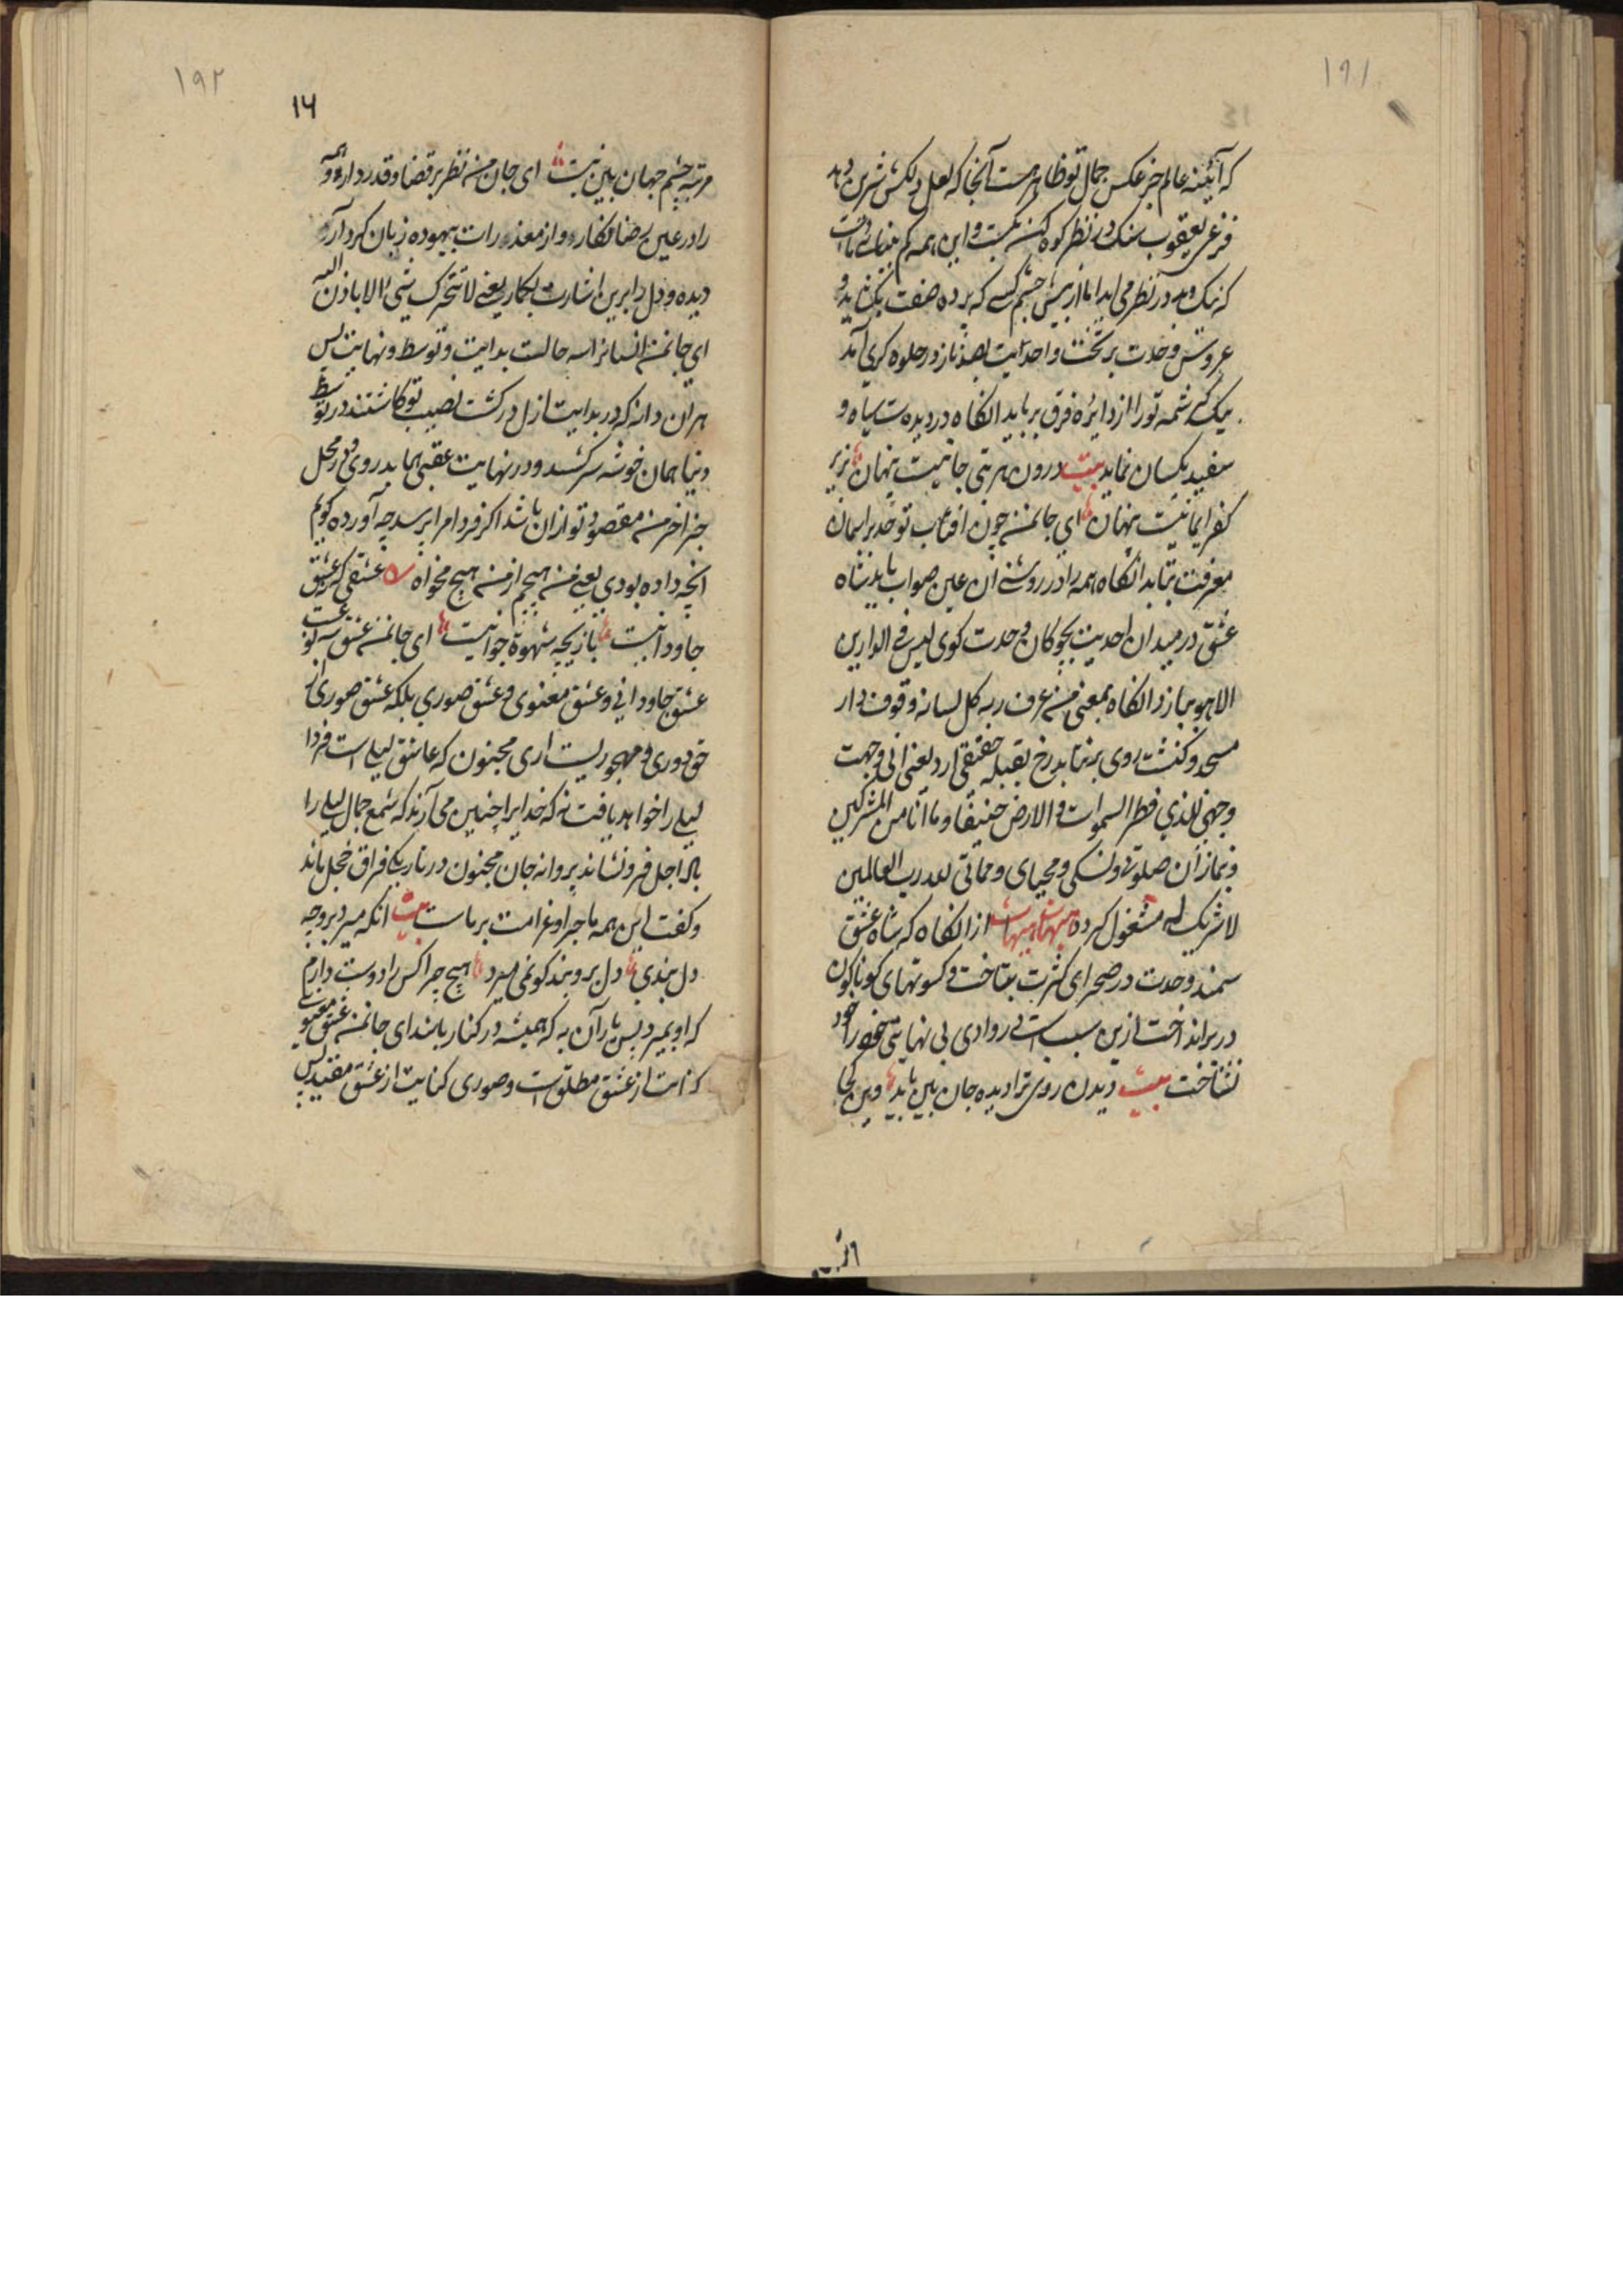 ۱۹۱
که آئینه عالم جز عکس جمال تو ظاهر هست آنجا که لعل دلکش شیرین دهد
یعقوب سنک در نظر کوه کن نیست و این همه کم
که نیک و بد در نظر می آید اما از پیش چشم کسی که پرده صفت بکشاید و
عروس وحدت بر تخت واحدایت بصد ناز در جلوه کری آمد
یک کرشمه تو را از دایره فرق برباید انکاه در دیده ت سیاه و
سفید یکسان نماید بیت درون هر بتی جانیست پنهان بزیر
کفر ایمانیست پنهان ای جانمن چون افتاب توحید بر ایمان
معرفت بتابد انکاه همه را در روشنی آن عین صواب یابد شاه
عشق در میدان احدیت بچوکان وحدت کوی لیس فی الدارین
الا هو ببازد انکاه بمعنی من عرف ربه کل لسانه وقوف دار
مسجد و کنشت روی برنتابد رخ بقبله حقیقی ارد یعنی انی وجهت
وجهی للذی فطر السموات و الارض حنیفا و ما انا من المشرکین
و نماز ان صلوتی و نسکی و محیای و مماتی لله رب العالمین
لا شریک له مشغول کرده هیهات هیهات از انکاه که شاه عشق
سمند وحدت در صحرای کثرت بتاخت و کسوتهای کوناکون
در بر انداخت ازین سبب است که روا دی بی نهایتی خود را خود
نشناخت بیت دیدن روی ترا دیده جان بین باید وین کجا
۱۹۲
۱۶
مرتبه چشم جهان بین نیست ای جان من نظر بر قضا و قدر دار و همه
را در عین رضا انکار و از معذورات بیهوده زبان کرد آر
دیده و دل را برین اشارت بکمار یعنی لا تتحرک شیء الا باذن الله
ای جانمن انسانرا سه حالست بدایت و توسط و نهایت پس
هر ان دانه که در بدایت ازل در کشت نصیب تو کاشتند در توسط
دنیا همان خوشه سر کشد و در نهایت عقبی همابد روی و در محل
جز اخر من مقصود تو ازان باشد اکر فردا مرا پرسد چه آورده کویم
انچه داده بودی یعنی من هیچم از من هیچ مخواه عشقی که عشق
جاودانیست بازیچه شهوة جوانیست ای جانمن عشق سه نوعست
عشق جاودانی و عشق معنوی و عشق صوری بلکه عشق صوری از
حق دوری و مهجوریست اری مجنون که عاشق لیلی است فردا
لیلی را خواهد یافت نه که خدایرا چنین می آرند که شمع جمال لیلی را
باد اجل فرو نشاند پروانه جان مجنون در تاریکی فراق خجل ماند
و کفت این همه ماجرا و غرامت بر ماست بیت انکه میرد بروچه
دل بندی دل برو بند کو نمی میرد هیچ چرا کس را دوست دارم
که او بمیرد پس یار آن به که همیشه در کنار باشد ای جانمن عشق معنوی
کنایت از عشق مطلق است و صوری کنایت از عشق مقید پس